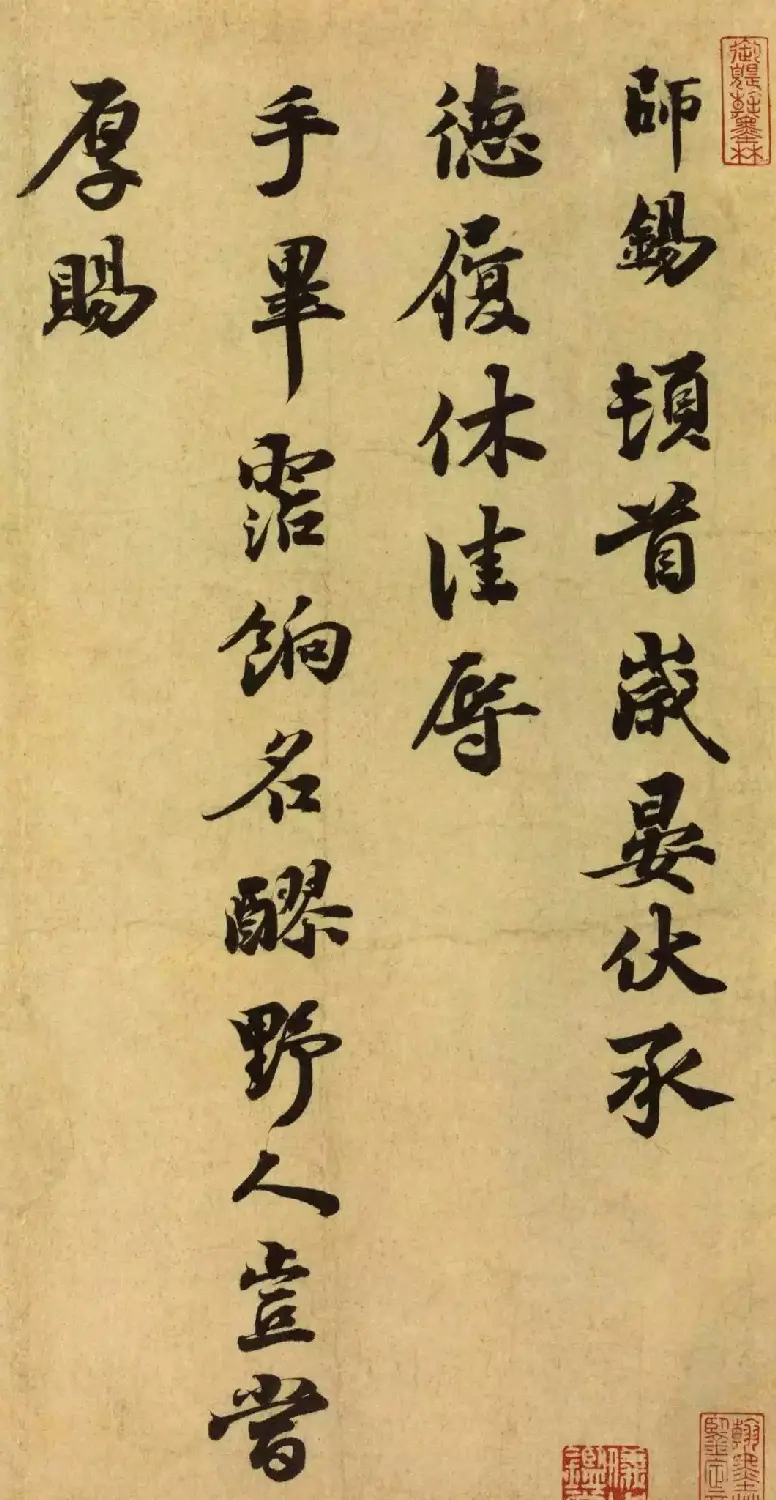 師錫頓首歲晏伏承
德履休佳辱
手畢霑餉名醪野人豈嘗
厚賜